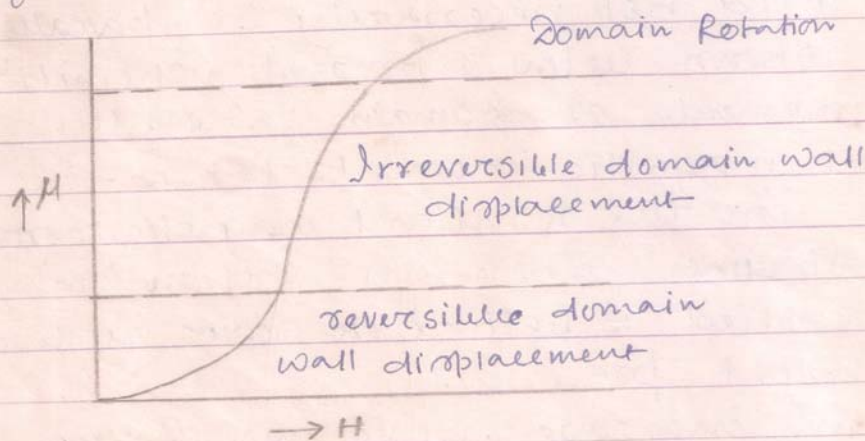 Domain Rotation
Irreversible domain wall
displacement
↑M
reversible domain
wall displacement
→ H